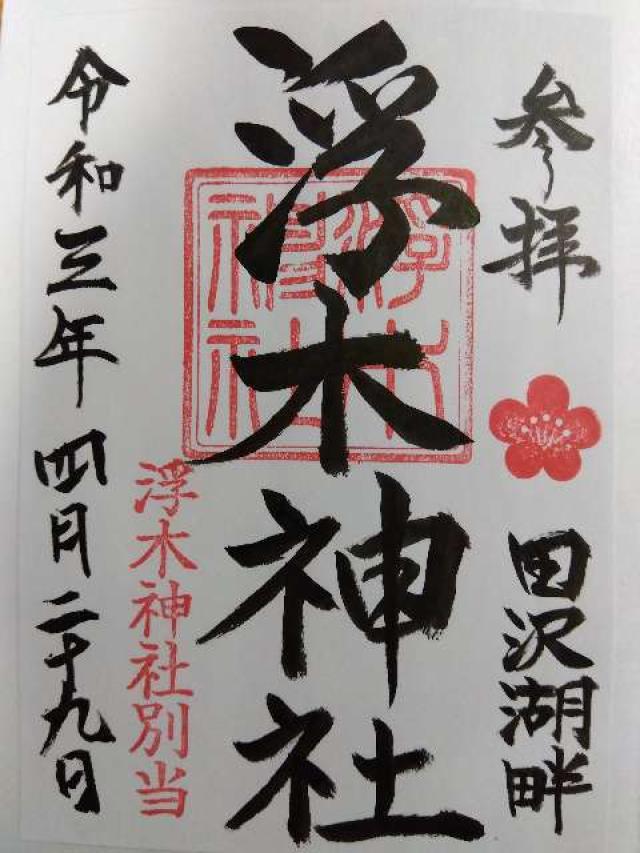 参拝
田沢湖畔
浮木神社
浮木神社
浮木神社別当
令和三年四月二十九日